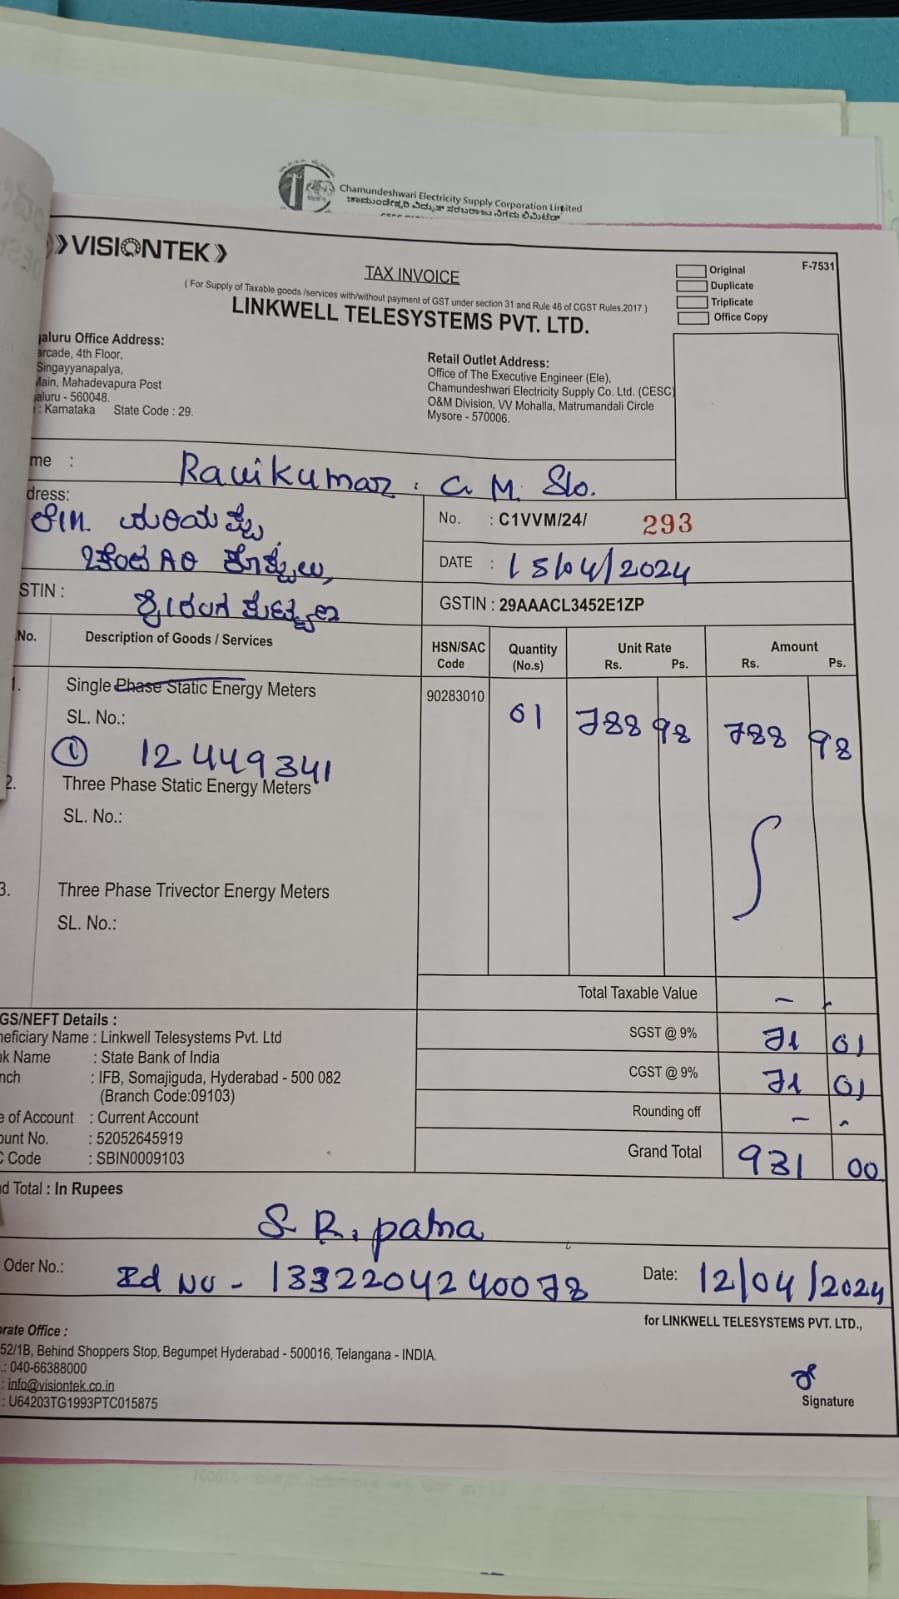 Chamundeshwari Electricity Supply Corporation Limited
ಚಾಮುಂಡೇಶ್ವರಿ ವಿದ್ಯುತ್ ಸರಬರಾಜು ನಿಗಮ ಲಿಮಿಟೆಡ್
VISIONTEK
TAX INVOICE
( For Supply of Taxable goods /services with/without payment of GST under section 31 and Rule 46 of CGST Rules,2017 )
LINKWELL TELESYSTEMS PVT. LTD.
F-7531
Original
Duplicate
Triplicate
Office Copy
aluru Office Address:
arcade, 4th Floor,
Singayyanapalya,
Main, Mahadevapura Post
aluru - 560048.
: Karnataka State Code : 29.
Retail Outlet Address:
Office of The Executive Engineer (Ele),
Chamundeshwari Electricity Supply Co. Ltd. (CESC)
O&M Division, VV Mohalla, Matrumandali Circle
Mysore - 570006.
me : Ravikumar . C M. S/o.
dress:
No. : C1VVM/24/ 293
DATE : 15/04/2024
STIN :
GSTIN : 29AAACL3452E1ZP
No. Description of Goods / Services HSN/SAC Code Quantity (No.s) Unit Rate Rs. Ps. Amount Rs. Ps.
1. Single Phase Static Energy Meters 90283010 01 788 98 788 98
SL. No.:
① 12449341
2. Three Phase Static Energy Meters
SL. No.:
3. Three Phase Trivector Energy Meters
SL. No.:
Total Taxable Value - -
GS/NEFT Details :
neficiary Name : Linkwell Telesystems Pvt. Ltd
SGST @ 9% 71 01
nk Name : State Bank of India
nch : IFB, Somajiguda, Hyderabad - 500 082
(Branch Code:09103)
CGST @ 9% 71 01
e of Account : Current Account
Rounding off - -
ount No. : 52052645919
C Code : SBIN0009103
Grand Total 931 00
d Total : In Rupees
S R. patna
Oder No.: Id No - 1332204240078 Date: 12/04/2024
for LINKWELL TELESYSTEMS PVT. LTD.,
orate Office :
52/1B, Behind Shoppers Stop, Begumpet Hyderabad - 500016, Telangana - INDIA.
.: 040-66388000
: info@visiontek.co.in
: U64203TG1993PTC015875
Signature